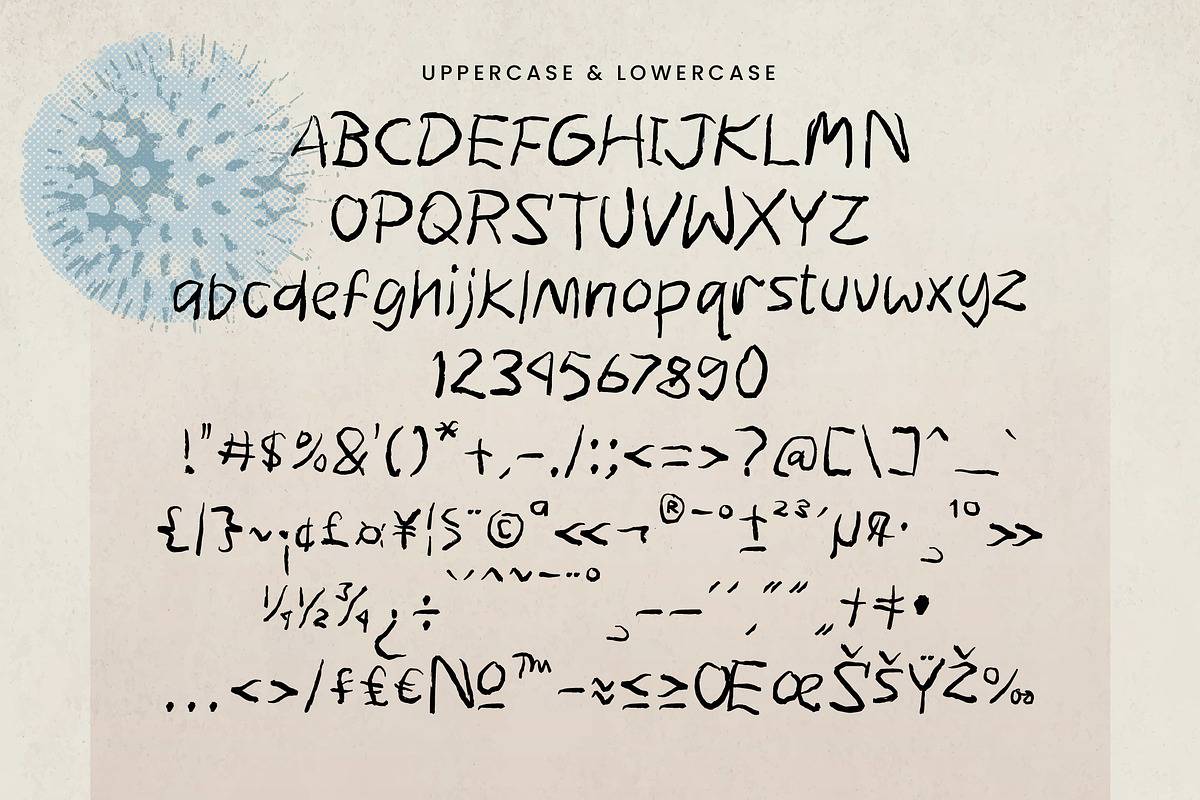 UPPERCASE & LOWERCASE
ABCDEFGHIJKLMN
OPQRSTUVWXYZ
abcdefghijklmnopqrstuvwxyz
1234567890
!"#$%&'()*+,-./:;<=>?@[\]^_`
{|}~¡¢£¤¥¦§¨©ª«¬®¯°±²³´µ¶·¸¹º»
¼½¾¿÷ˋˊˆ˜¯¨˚¸–—‘’‚“”„†‡•
…‹›⁄₣₤€№™−≈≤≥ŒœŠšŸŽ‰